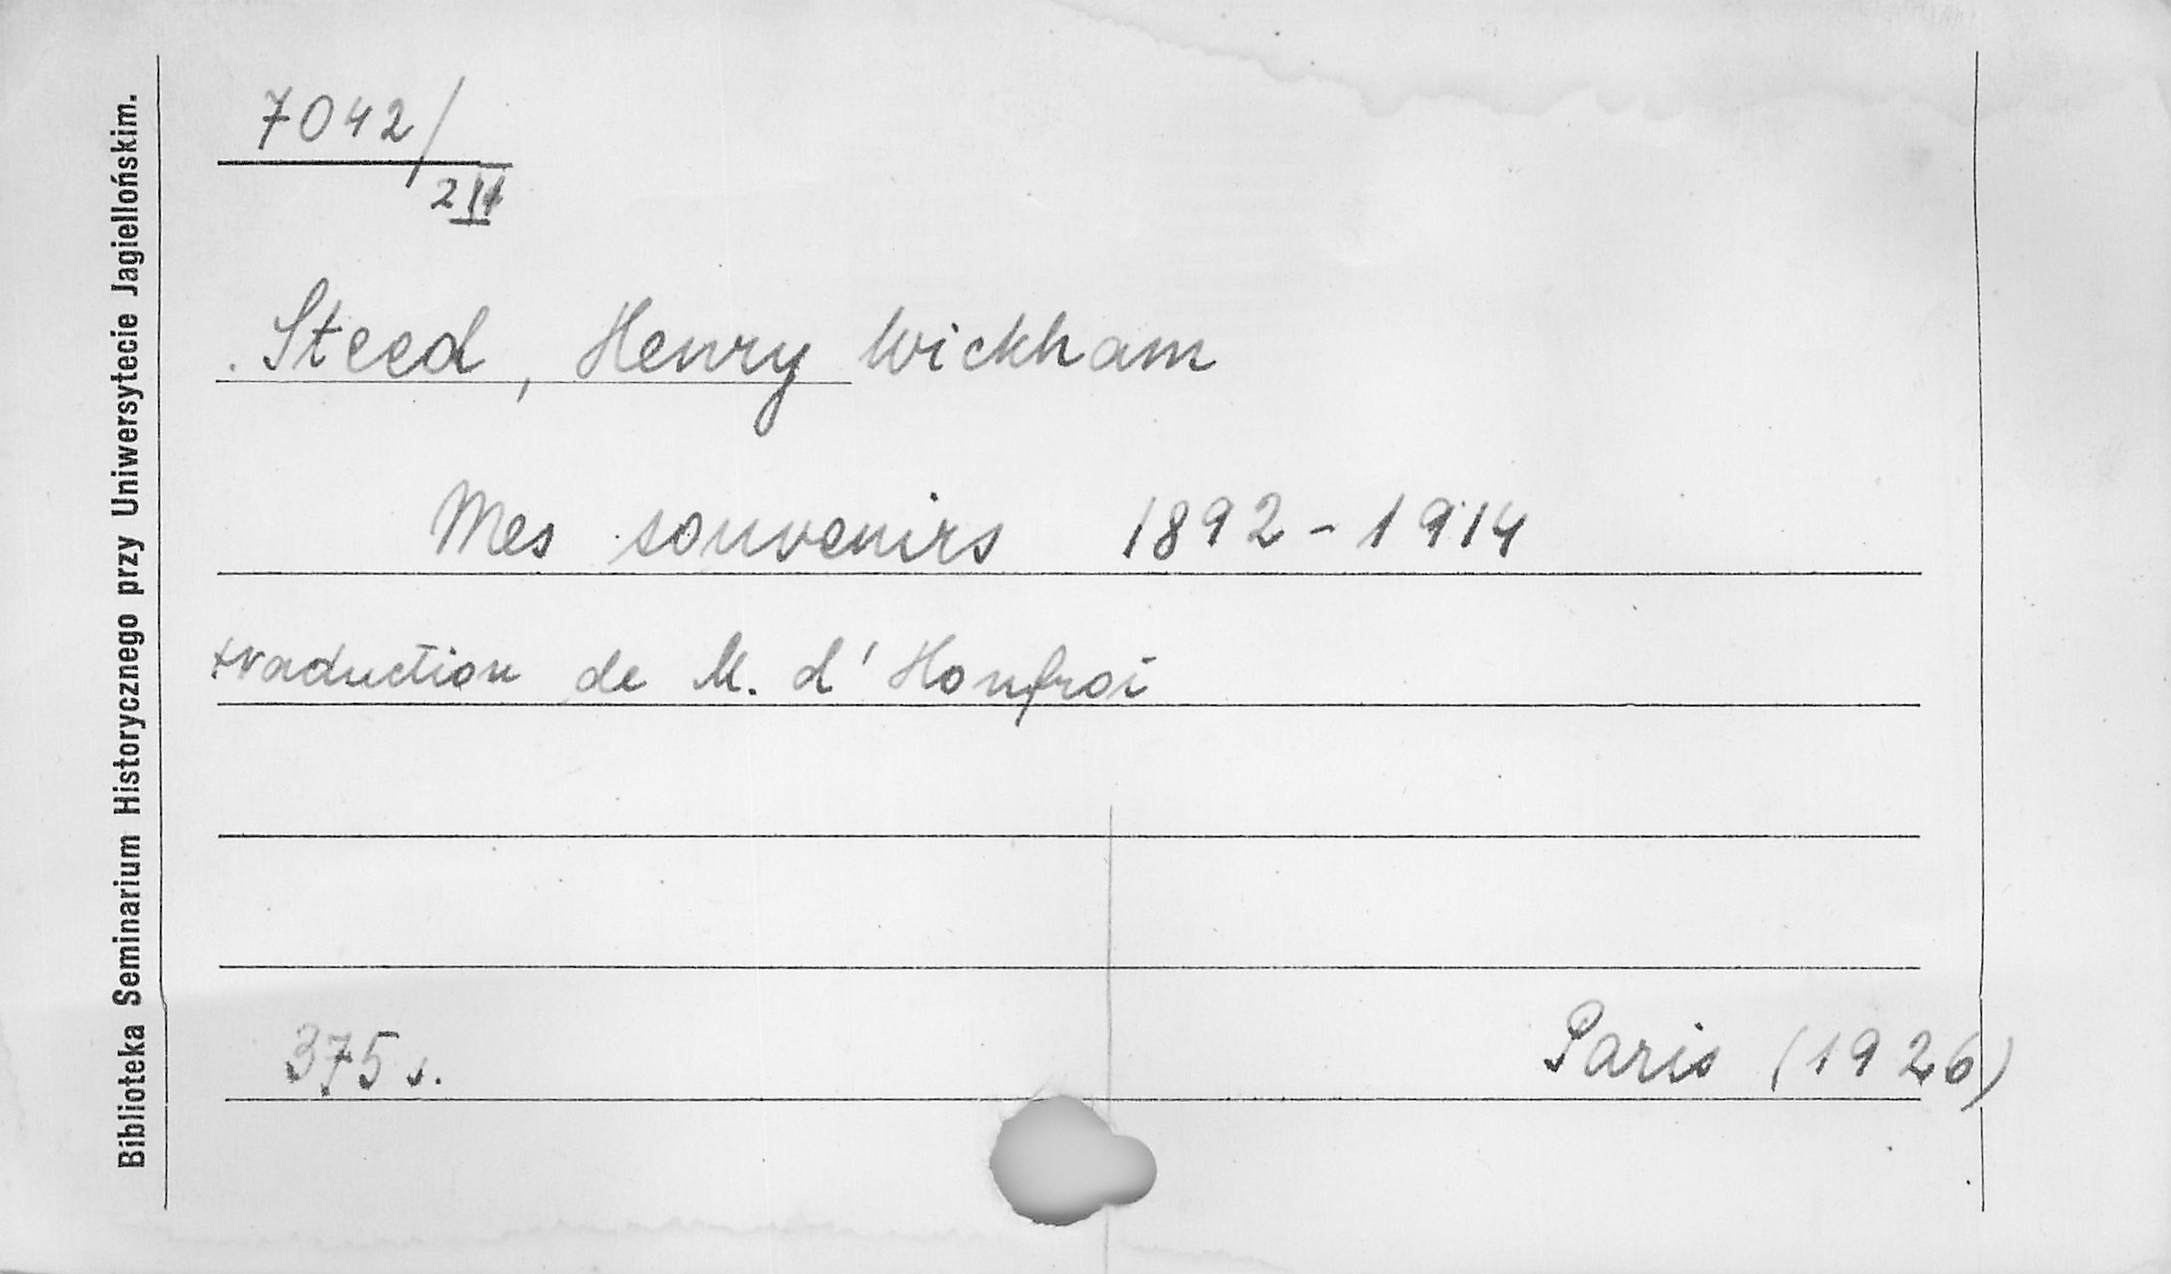 7042/
2 II
Steed, Henry Wickham
Mes souvenirs 1892-1914
traduction de M. d'Honfroi
375 s.
Paris (1926)
Biblioteka Seminarium Historycznego przy Uniwersytecie Jagiellońskim.